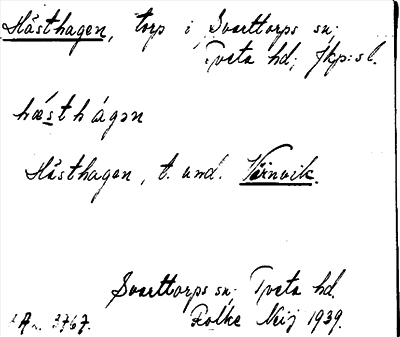 Hästhagen, torp i Svarttorps sn;
Tveta hd; Jkp:s l.
hǽsthágən
Hästhagen, t. und. Värnvik.
Svarttorps sn; Tveta hd.
3767. Folke Neij 1939.